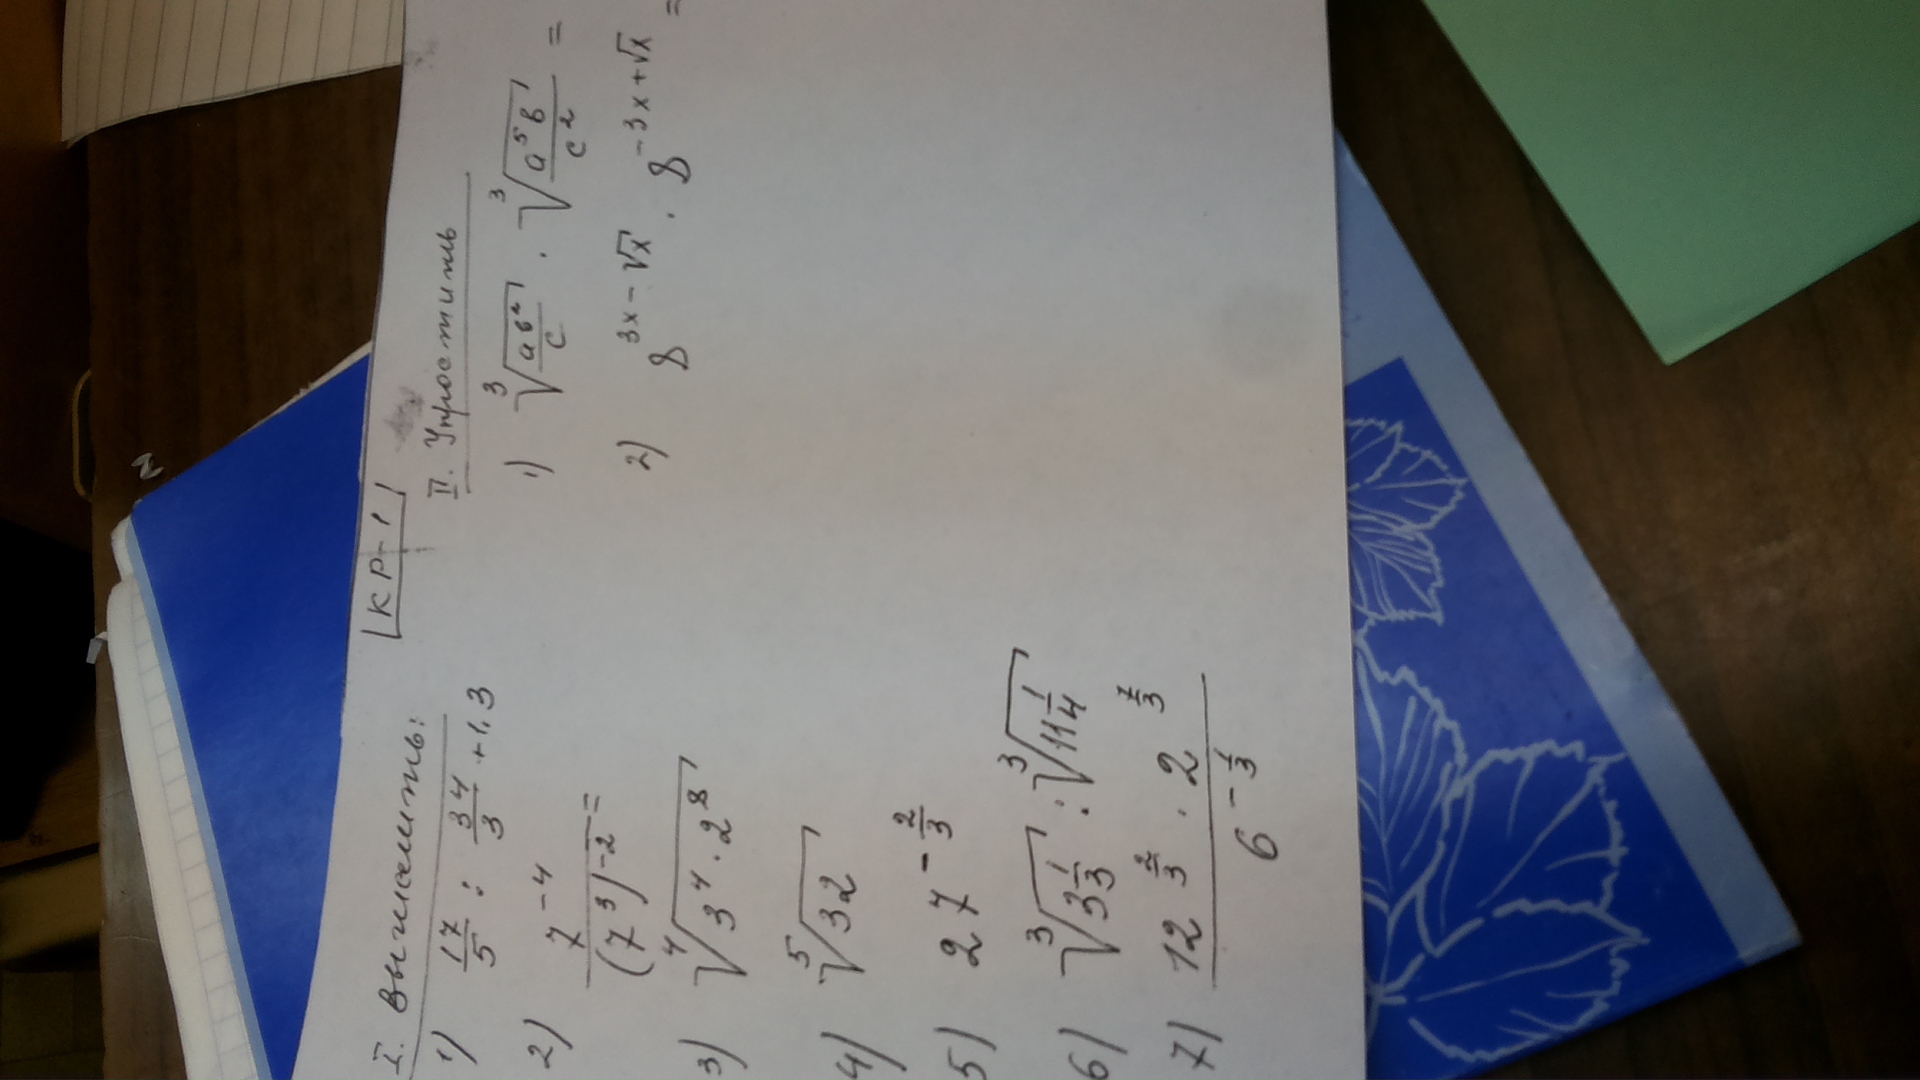 КР-1
I. Вычислить:
1) 17/5 : 34/3 + 1,3
2) 7^-4 / (7^3)^-2 =
3) ⁴√(3^4 · 2^8)
4) ⁵√32
5) 27^(-2/3)
6) ³√(3 1/3) : ³√(11 1/4)
7) (12^(2/3) · 2^(7/3)) / 6^(-1/3)
II. Упростить
1) ³√(ab²/c) · ³√(a⁵b/c²) =
2) 8^(3x-√x) · 8^(-3x+√x) =